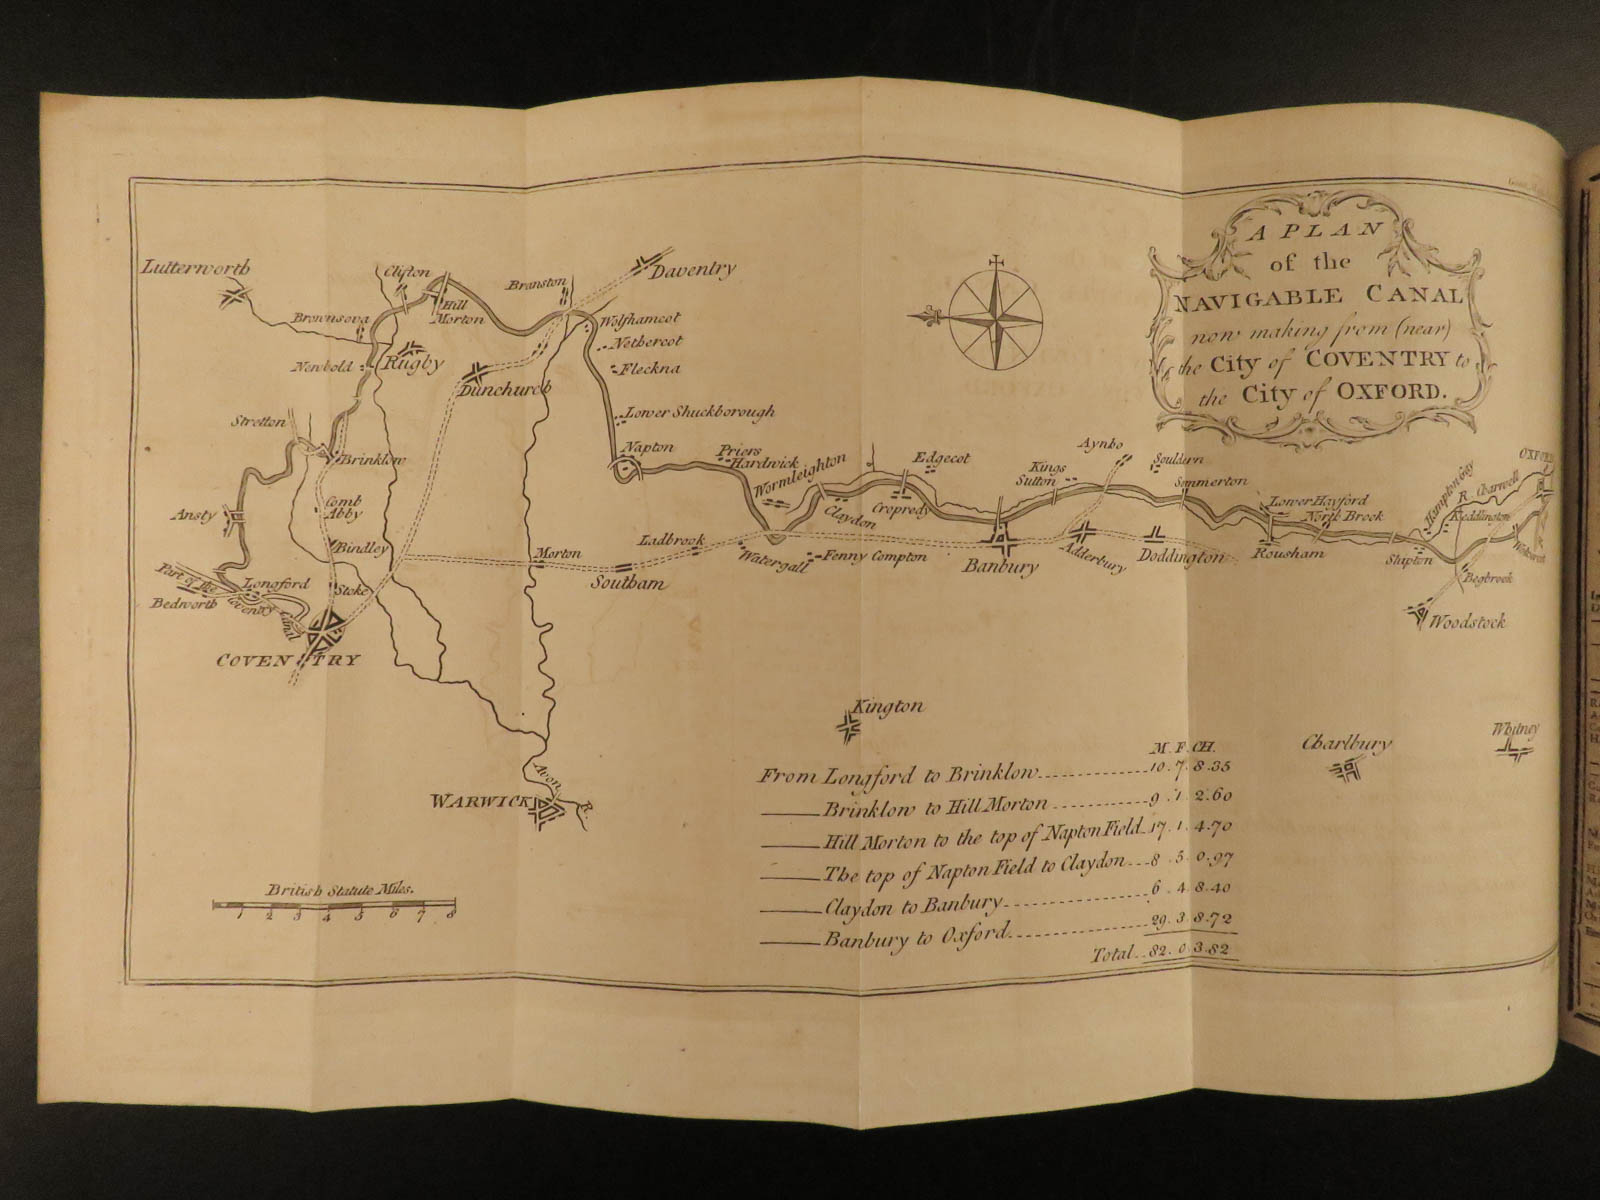 A PLAN
of the
NAVIGABLE CANAL
now making from (near)
the City of COVENTRY to
the City of OXFORD.
Lutterworth
Clifton
Hill
Morton
Branston
Daventry
Brownsova
Wolfhamcot
Nethercot
Newbold
Rugby
Fleckna
Dunchurch
Lower Shuckborough
Stretton
Brinklow
Napton
Priers
Hardwick
Wormleighton
Edgecot
Aynho
Souldern
Kings
Sutton
Sommerton
OXFORD
Ansty
Comb
Abby
Claydon
Cropredy
Lower Hayford
North Brook
Hampton Gay
R. Charwell
Keddlington
Bindley
Morton
Ladbrook
Watergall
Fenny Compton
Banbury
Adderbury
Doddington
Rousham
Shipton
Southam
Begbrook
Part of the
Coventry Canal
Bedworth
Longford
Stoke
COVENTRY
Woodstock
Kington
Charlbury
Whitney
WARWICK
Avon R.
M. F. CH.
From Longford to Brinklow 10. 7. 8. 35
Brinklow to Hill Morton 9. 1. 2. 60
Hill Morton to the top of Napton Field 17. 1. 4. 70
The top of Napton Field to Claydon 8. 5. 0. 97
Claydon to Banbury 6. 4. 8. 40
Banbury to Oxford 29. 3. 8. 72
Total 82. 0. 3. 82
British Statute Miles.
1 2 3 4 5 6 7 8